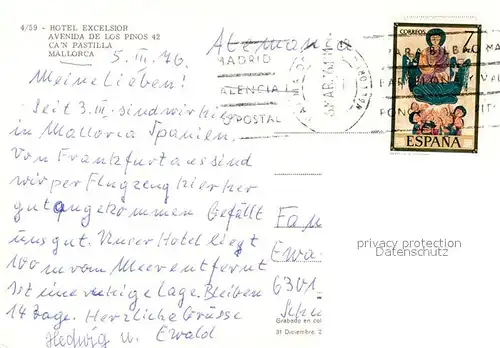 4/59 - HOTEL EXCELSIOR
AVENIDA DE LOS PINOS 42
CA'N PASTILLA
MALLORCA
5. III. 76.
Alemania
Meine Lieben!
Seit 3. III. sind wir hier
in Mallorca Spanien.
Von Frankfurt aus sind
wir per Flugzeug hierher
gut angekommen Gefällt
uns gut. Unser Hotel liegt
100 m vom Meer entfernt
Ist eine ruhige Lage. Bleiben
14 Tage. Herzliche Grüsse
Hedwig u. Ewald
CORREOS
7
ESPAÑA
MADRID
VALENCIA
POSTAL
PARA BILBAO
Fam
Ewa
6301
privacy protection
Datenschutz
Grabado en col
31 Diciembre, 2